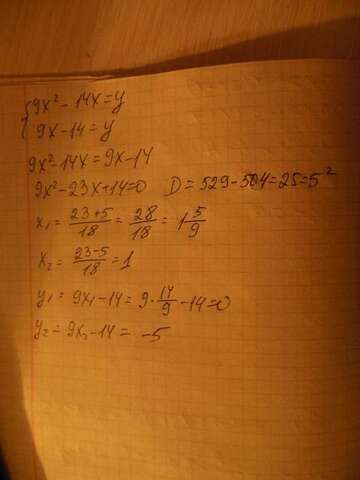 { 9x² - 14x = y
9x - 14 = y
9x² - 14x = 9x - 14
9x² - 23x + 14 = 0 D = 529 - 504 = 25 = 5²
x₁ = (23+5)/18 = 28/18 = 1 5/9
x₂ = (23-5)/18 = 1
y₁ = 9x₁ - 14 = 9 · 14/9 - 14 = 0
y₂ = 9x₂ - 14 = -5